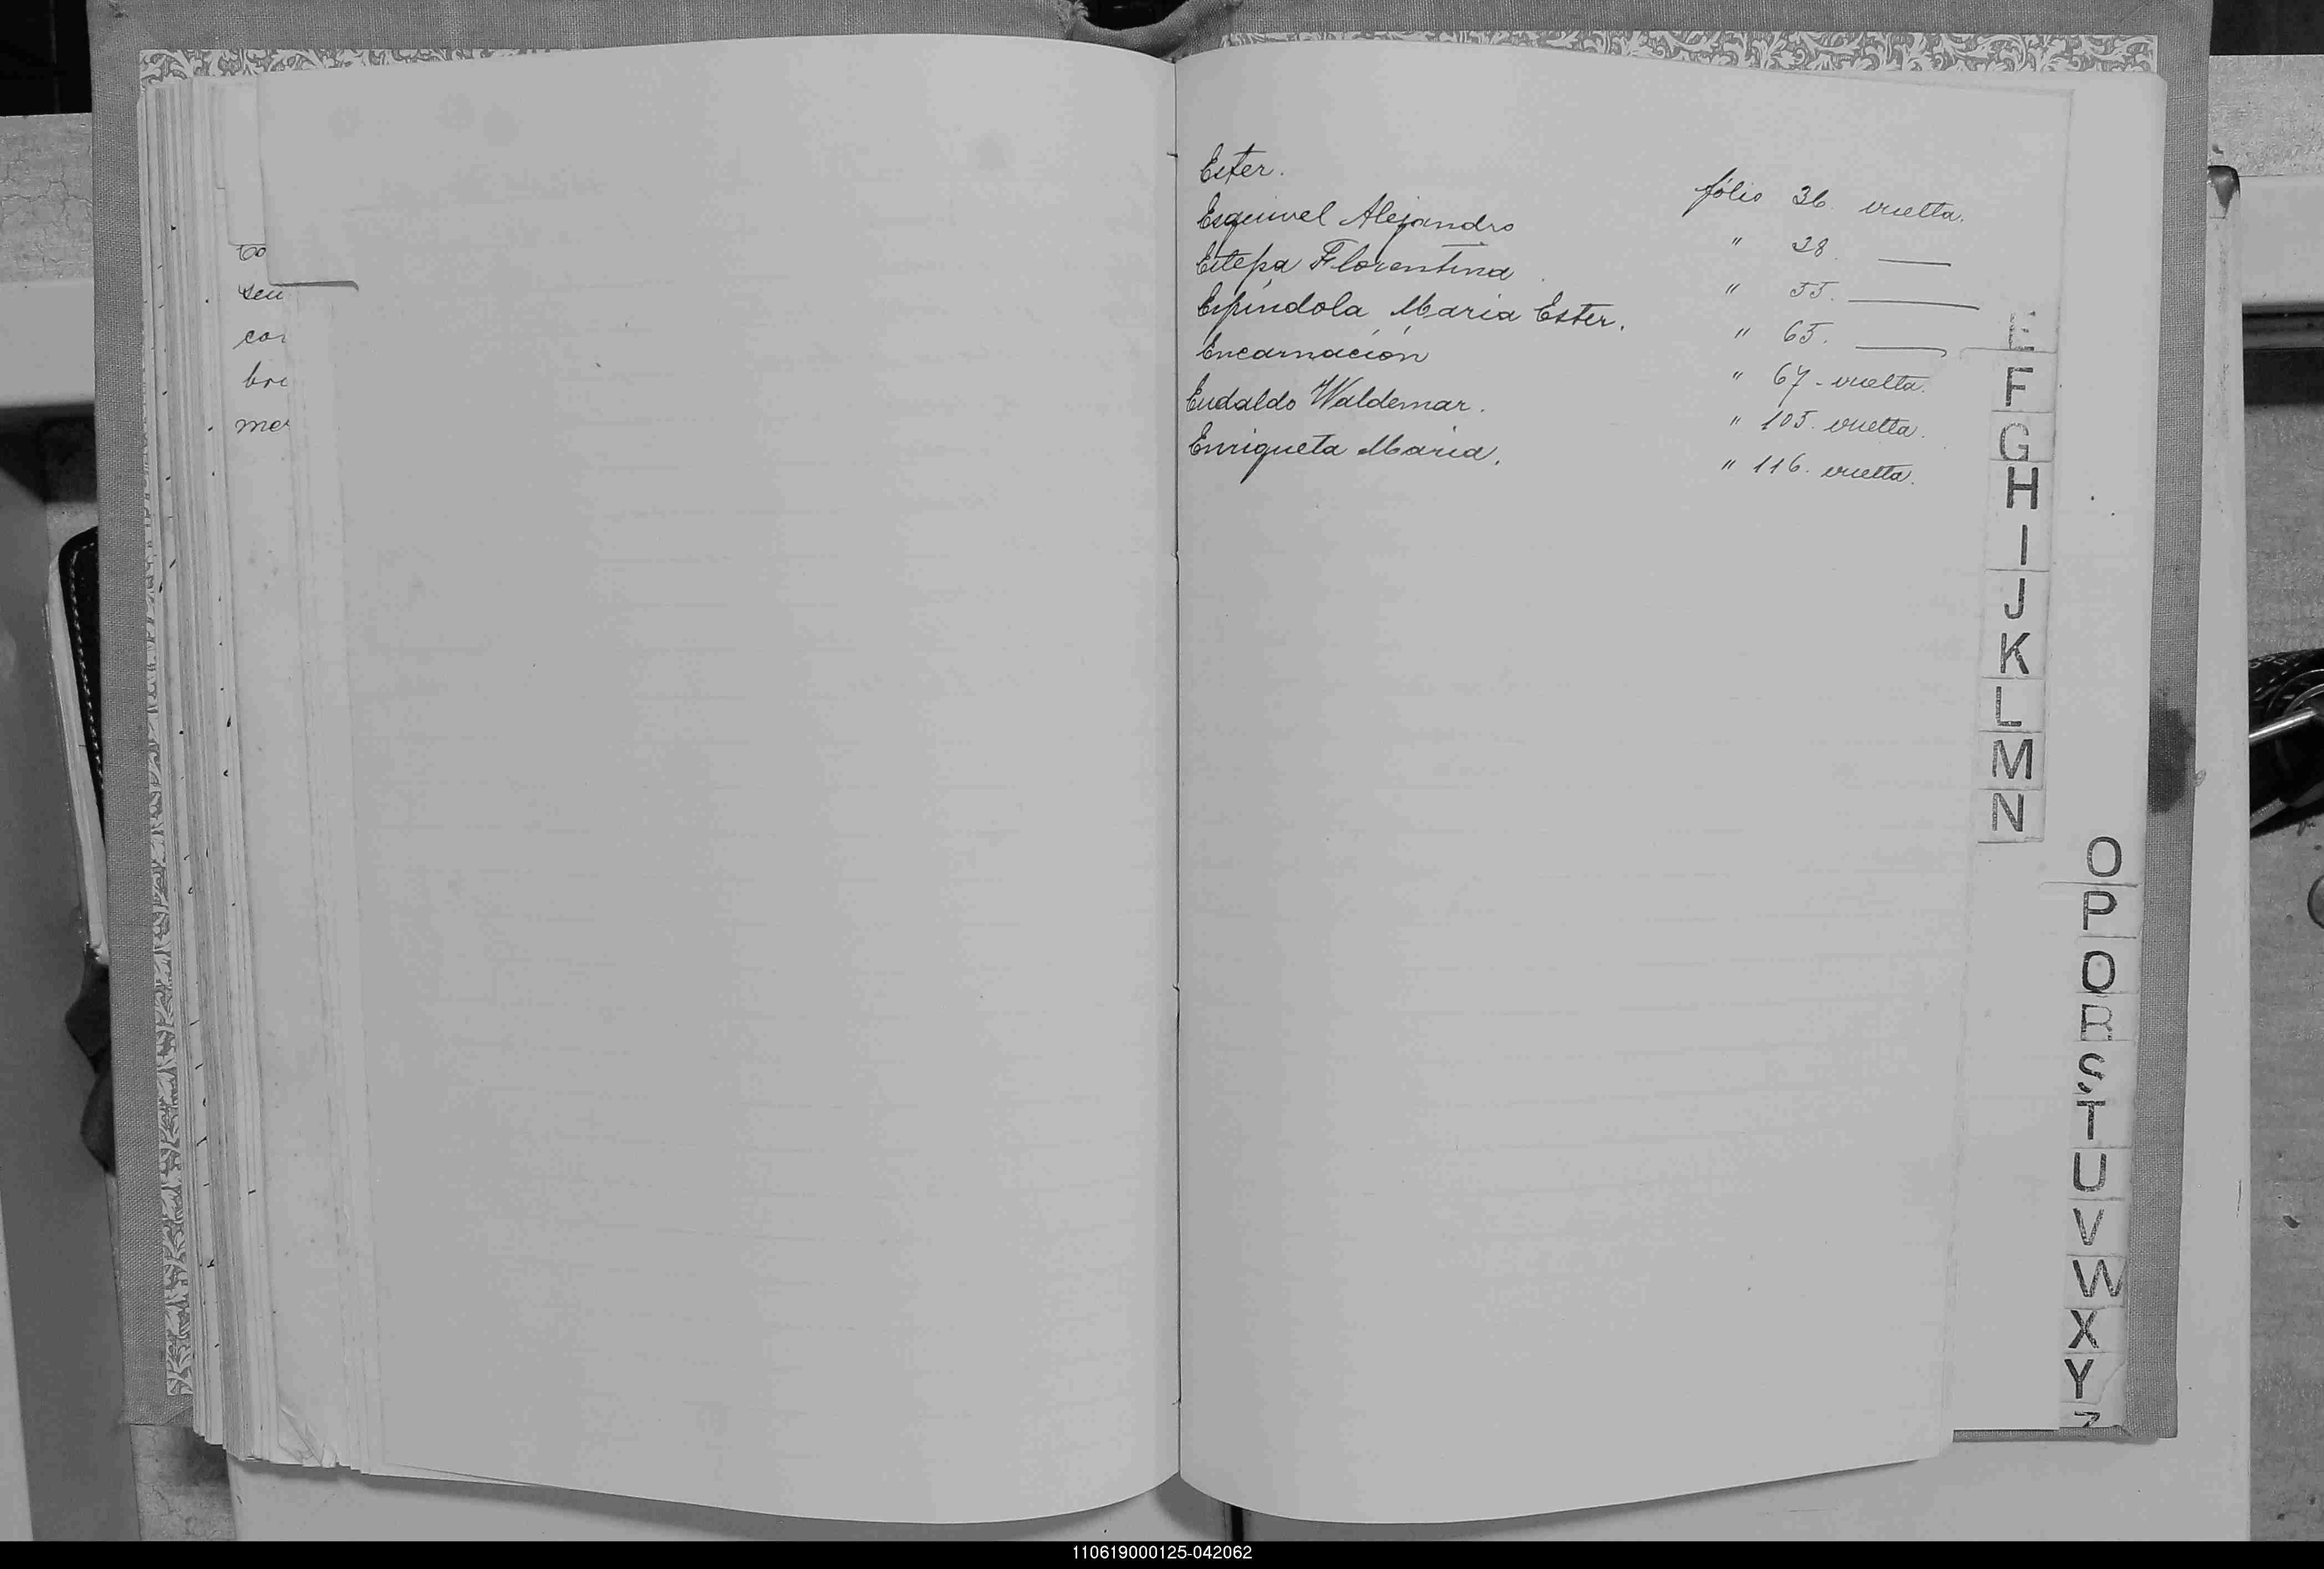 co
seu
co
bri
me
Ester. fólio 36. vuelta.
Esquivel Alejandro " 38. ——
Estepa Florentina " 55. ——
Espíndola Maria Ester. " 65. ——
Encarnación " 67 - vuelta.
Eudaldo Waldemar. " 105. vuelta.
Enriqueta Maria. " 116. vuelta.
E
F
G
H
I
J
K
L
M
N
O
P
Q
R
S
T
U
V
W
X
Y
Z
110619000125-042062